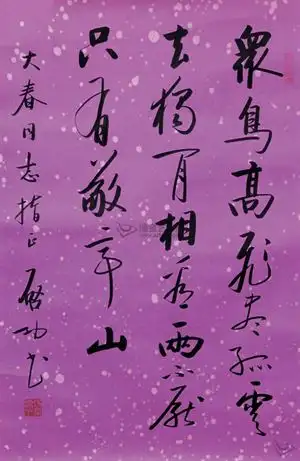 眾鳥高飛盡孤雲
去獨閒相看兩不厭
只有敬亭山
大春同志指正
啟功書